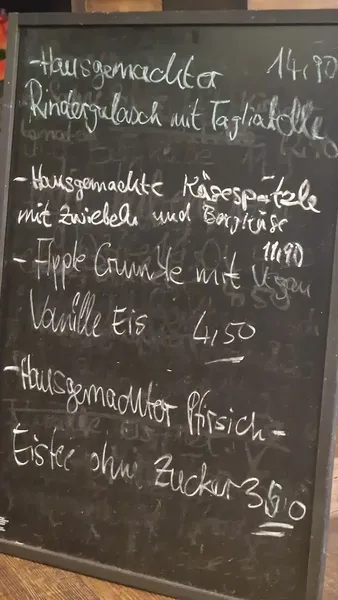 - Hausgemachter 14,90
Rindergulasch mit Tagliatelle
- Hausgemachte Käsespätzle
mit Zwiebeln und Bergkäse
11,90
- Apple Crumble mit
Vanille Eis 4,50
- Hausgemachter Pfirsich-
Eistee ohne Zucker 3,50